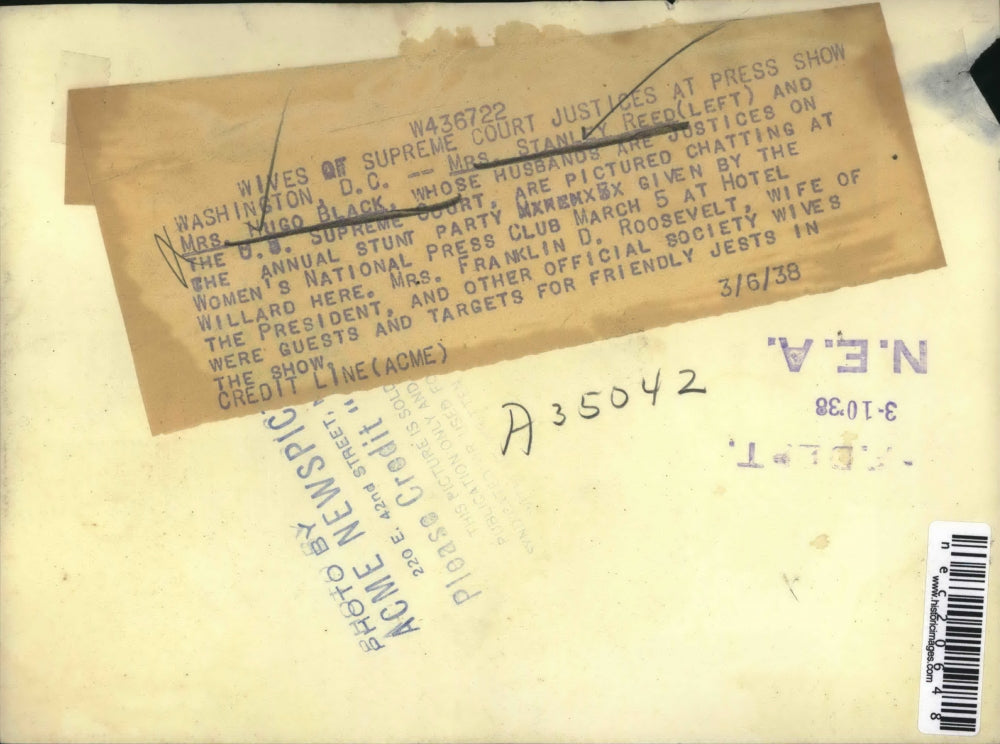 W436722
WIVES OF SUPREME COURT JUSTICES AT PRESS SHOW
WASHINGTON, D.C. -- MRS. STANLEY REED(LEFT) AND
MRS. HUGO BLACK, WHOSE HUSBANDS ARE JUSTICES ON
THE U.S. SUPREME COURT, ARE PICTURED CHATTING AT
THE ANNUAL STUNT PARTY GIVEN BY THE
WOMEN'S NATIONAL PRESS CLUB MARCH 5 AT HOTEL
WILLARD HERE. MRS. FRANKLIN D. ROOSEVELT, WIFE OF
THE PRESIDENT, AND OTHER OFFICIAL SOCIETY WIVES
WERE GUESTS AND TARGETS FOR FRIENDLY JESTS IN
THE SHOW.
CREDIT LINE(ACME) 3/6/38
A35042
N.E.A.
3-10-38
PHOTO BY
ACME NEWSPIC
220 E. 42nd STREET,
Please Credit "
THIS PICTURE IS SOLD
PUBLICATION ONLY AND
nec20648
www.historicimages.com